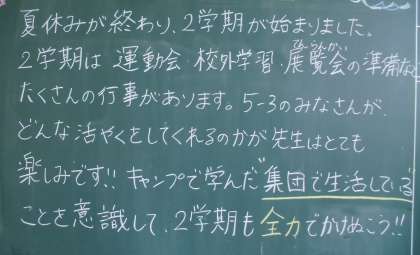 夏休みが終わり、2学期が始まりました。
2学期は 運動会・校外学習・展覧会の準備など
たくさんの行事があります。5-3のみなさんが、
どんな活やくをしてくれるのかが先生はとても
楽しみです!! キャンプで学んだ"集団で生活している"
ことを意識して、2学期も全力でかけぬこう!!